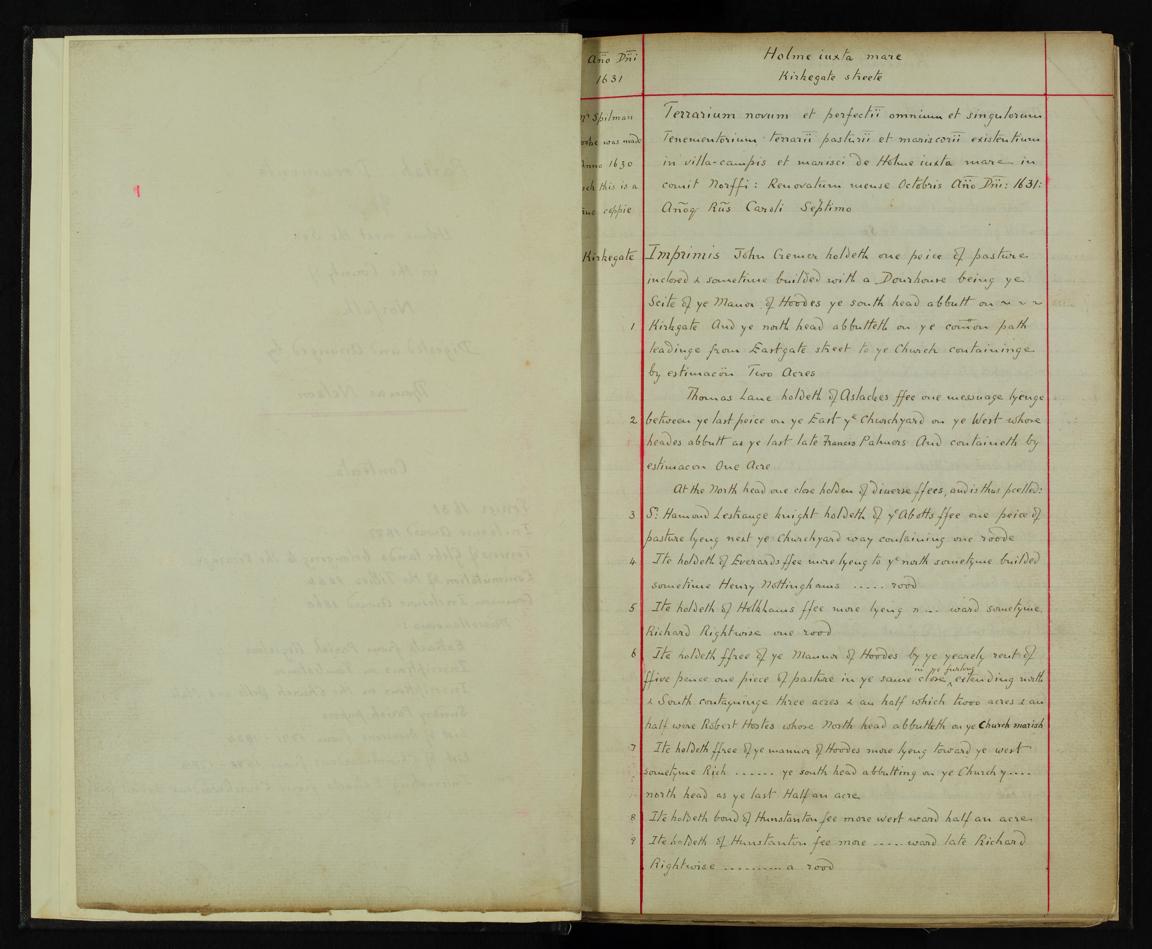 Año Dñi
1631
Holme iuxta mare
Kirkegate streete
Mr Spilman
booke was made
Anno 1630
this is a
true coppie
Terrarium novum et perfectii omnium et singulorum
Tenementorium terrarii pasturii et mariscorii existentium
in villa-campis et marisci de Holme iuxta mare in
comit Norffi: Renovatum mense Octobris Año Dñi: 1631:
Añoq Rñs Caroli Septimo
Kirkegate
Imprimis John Cremer holdeth one peice of pasture
inclosed & sometime builded with a Dourhouse being ye
Scite of ye Manor of Hoodes ye south head abbutt on ~ ~ ~
1 Kirkgate And ye north head abbutteth on ye comon path
leadinge from Eastgate street to ye Church containinge
by estimacon Two Acres
Thomas Lane holdeth of Aslackes ffee one messuage lyenge
2 between ye last peice on ye East ye Churchyard on ye West whose
heades abbutt as ye last late Francis Palmers And containeth by
estimacon One Acre
At the North head one close holden of diverse ffees, and is thus pcelled:
3 Sr. Hamond Lestrange knight holdeth of ye Abotts ffee one peice of
pasture lyeng next ye Churchyard way containing one roode
4 Ite holdeth of Everards ffee more lyeng to ye north sometyme builded
sometime Henry Nottinghams ..... rood
5 Ite holdeth of Holkhams ffee more lyeng n ... ward sometyme
Richard Rightwise one rood
6 Ite holdeth ffree of ye Mannor of Hoodes by ye yearely rent of
ffive pence one piece of pasture in ye same close, in ye furlong extending north
& South contayninge three acres & an half which twoo acres & an
half were Robert Hostes whose North head abbutteth on ye Church marish
7 Ite holdeth ffree of ye mannor of Hoodes more lyeng toward ye west
sometyme Rich ...... ye south head abbutting on ye Church y....
north head as ye last Half an acre
8 Ite holdeth bond of Hunstanton fee more west ward half an acre
9 Ite holdeth of Hunstanton fee more ..... ward late Richard
Rightwise .......... a rood